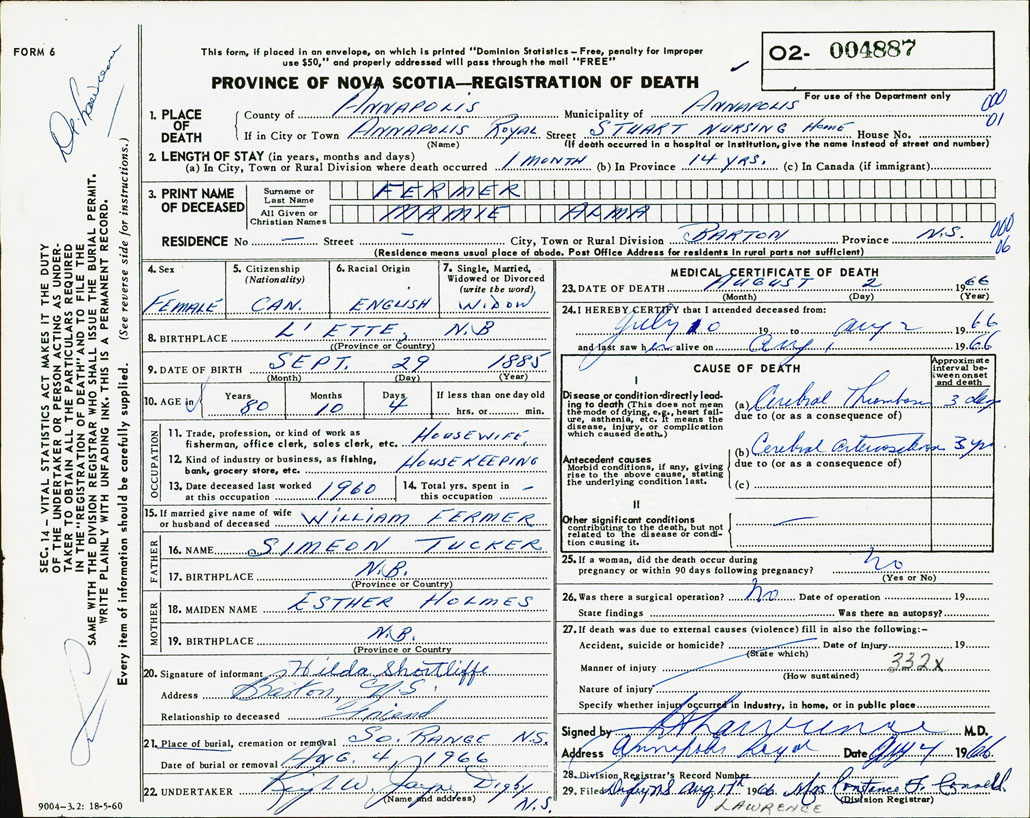 FORM 6
This form, if placed in an envelope, on which is printed "Dominion Statistics – Free, penalty for improper
use $50," and properly addressed will pass through the mail "FREE"
PROVINCE OF NOVA SCOTIA—REGISTRATION OF DEATH
02- 004887
For use of the Department only
000
01
1. PLACE OF DEATH
County of ANNAPOLIS Municipality of ANNAPOLIS
If in City or Town ANNAPOLIS ROYAL Street STUART NURSING HOME House No.
(Name) (If death occurred in a hospital or Institution, give the name instead of street and number)
2. LENGTH OF STAY (in years, months and days)
(a) In City, Town or Rural Division where death occurred 1 MONTH (b) In Province 14 YRS. (c) In Canada (if immigrant)
3. PRINT NAME OF DECEASED
Surname or Last Name FERMER
All Given or Christian Names MAMIE ALMA
RESIDENCE No – Street – City, Town or Rural Division BARTON Province N.S.
000
06
(Residence means usual place of abode. Post Office Address for residents in rural parts not sufficient)
4. Sex FEMALE
5. Citizenship (Nationality) CAN.
6. Racial Origin ENGLISH
7. Single, Married, Widowed or Divorced (write the word) WIDOW
8. BIRTHPLACE L'ETTE, N.B
(Province or Country)
9. DATE OF BIRTH SEPT. 29 1885
(Month) (Day) (Year)
10. AGE in Years 80 Months 10 Days 4 If less than one day old hrs. or min.
OCCUPATION
11. Trade, profession, or kind of work as fisherman, office clerk, sales clerk, etc. HOUSEWIFE
12. Kind of industry or business, as fishing, bank, grocery store, etc. HOUSEKEEPING
13. Date deceased last worked at this occupation 1960
14. Total yrs. spent in this occupation –
15. If married give name of wife or husband of deceased WILLIAM FERMER
FATHER
16. NAME SIMEON TUCKER
17. BIRTHPLACE N.B.
(Province or Country)
MOTHER
18. MAIDEN NAME ESTHER HOLMES
19. BIRTHPLACE N.B.
(Province or Country)
20. Signature of informant Hilda Shortliffe
Address Barton, N.S.
Relationship to deceased Friend
21. Place of burial, cremation or removal SO. RANGE N.S.
Date of burial or removal AUG. 4, 1966
22. UNDERTAKER W. Digby N.S.
(Name and address)
9004–3.2: 18-5-60
MEDICAL CERTIFICATE OF DEATH
23. DATE OF DEATH AUGUST 2 1966
(Month) (Day) (Year)
24. I HEREBY CERTIFY that I attended deceased from:
July 10 19 to Aug 2 1966
and last saw her alive on Aug 1 1966
CAUSE OF DEATH
Approximate interval between onset and death
I
Disease or condition directly leading to death (This does not mean the mode of dying, e.g., heart failure, asthenia, etc. It means the disease, injury, or complication which caused death.)
(a) Cerebral Thrombosis 3 days
due to (or as a consequence of)
Antecedent causes
Morbid conditions, if any, giving rise to the above cause, stating the underlying condition last.
(b) Cerebral arteriosclerosis 3 yrs.
due to (or as a consequence of)
(c)
II
Other significant conditions contributing to the death, but not related to the disease or condition causing it. –
25. If a woman, did the death occur during pregnancy or within 90 days following pregnancy? No
(Yes or No)
26. Was there a surgical operation? No Date of operation 19
State findings Was there an autopsy?
27. If death was due to external causes (violence) fill in also the following:–
Accident, suicide or homicide? Date of injury 19
(State which)
Manner of injury 332x
(How sustained)
Nature of injury
Specify whether injury occurred in Industry, in home, or in public place
Signed by Lawrence M.D.
Address Annapolis Royal Date Aug 4 1966
28. Division Registrar's Record Number
29. Filed Digby N.S. Aug 17th 1966 Mrs Constance F. Connell
(Division Registrar)
LAWRENCE
SEC. 14 – VITAL STATISTICS ACT MAKES IT THE DUTY
OF THE UNDERTAKER OR PERSON ACTING AS UNDER-
TAKER TO OBTAIN ALL THE PARTICULARS REQUIRED
IN THE "REGISTRATION OF DEATH" AND TO FILE THE
SAME WITH THE DIVISION REGISTRAR WHO SHALL ISSUE THE BURIAL PERMIT.
WRITE PLAINLY WITH UNFADING INK. THIS IS A PERMANENT RECORD.
Every item of information should be carefully supplied. (See reverse side for instructions.)